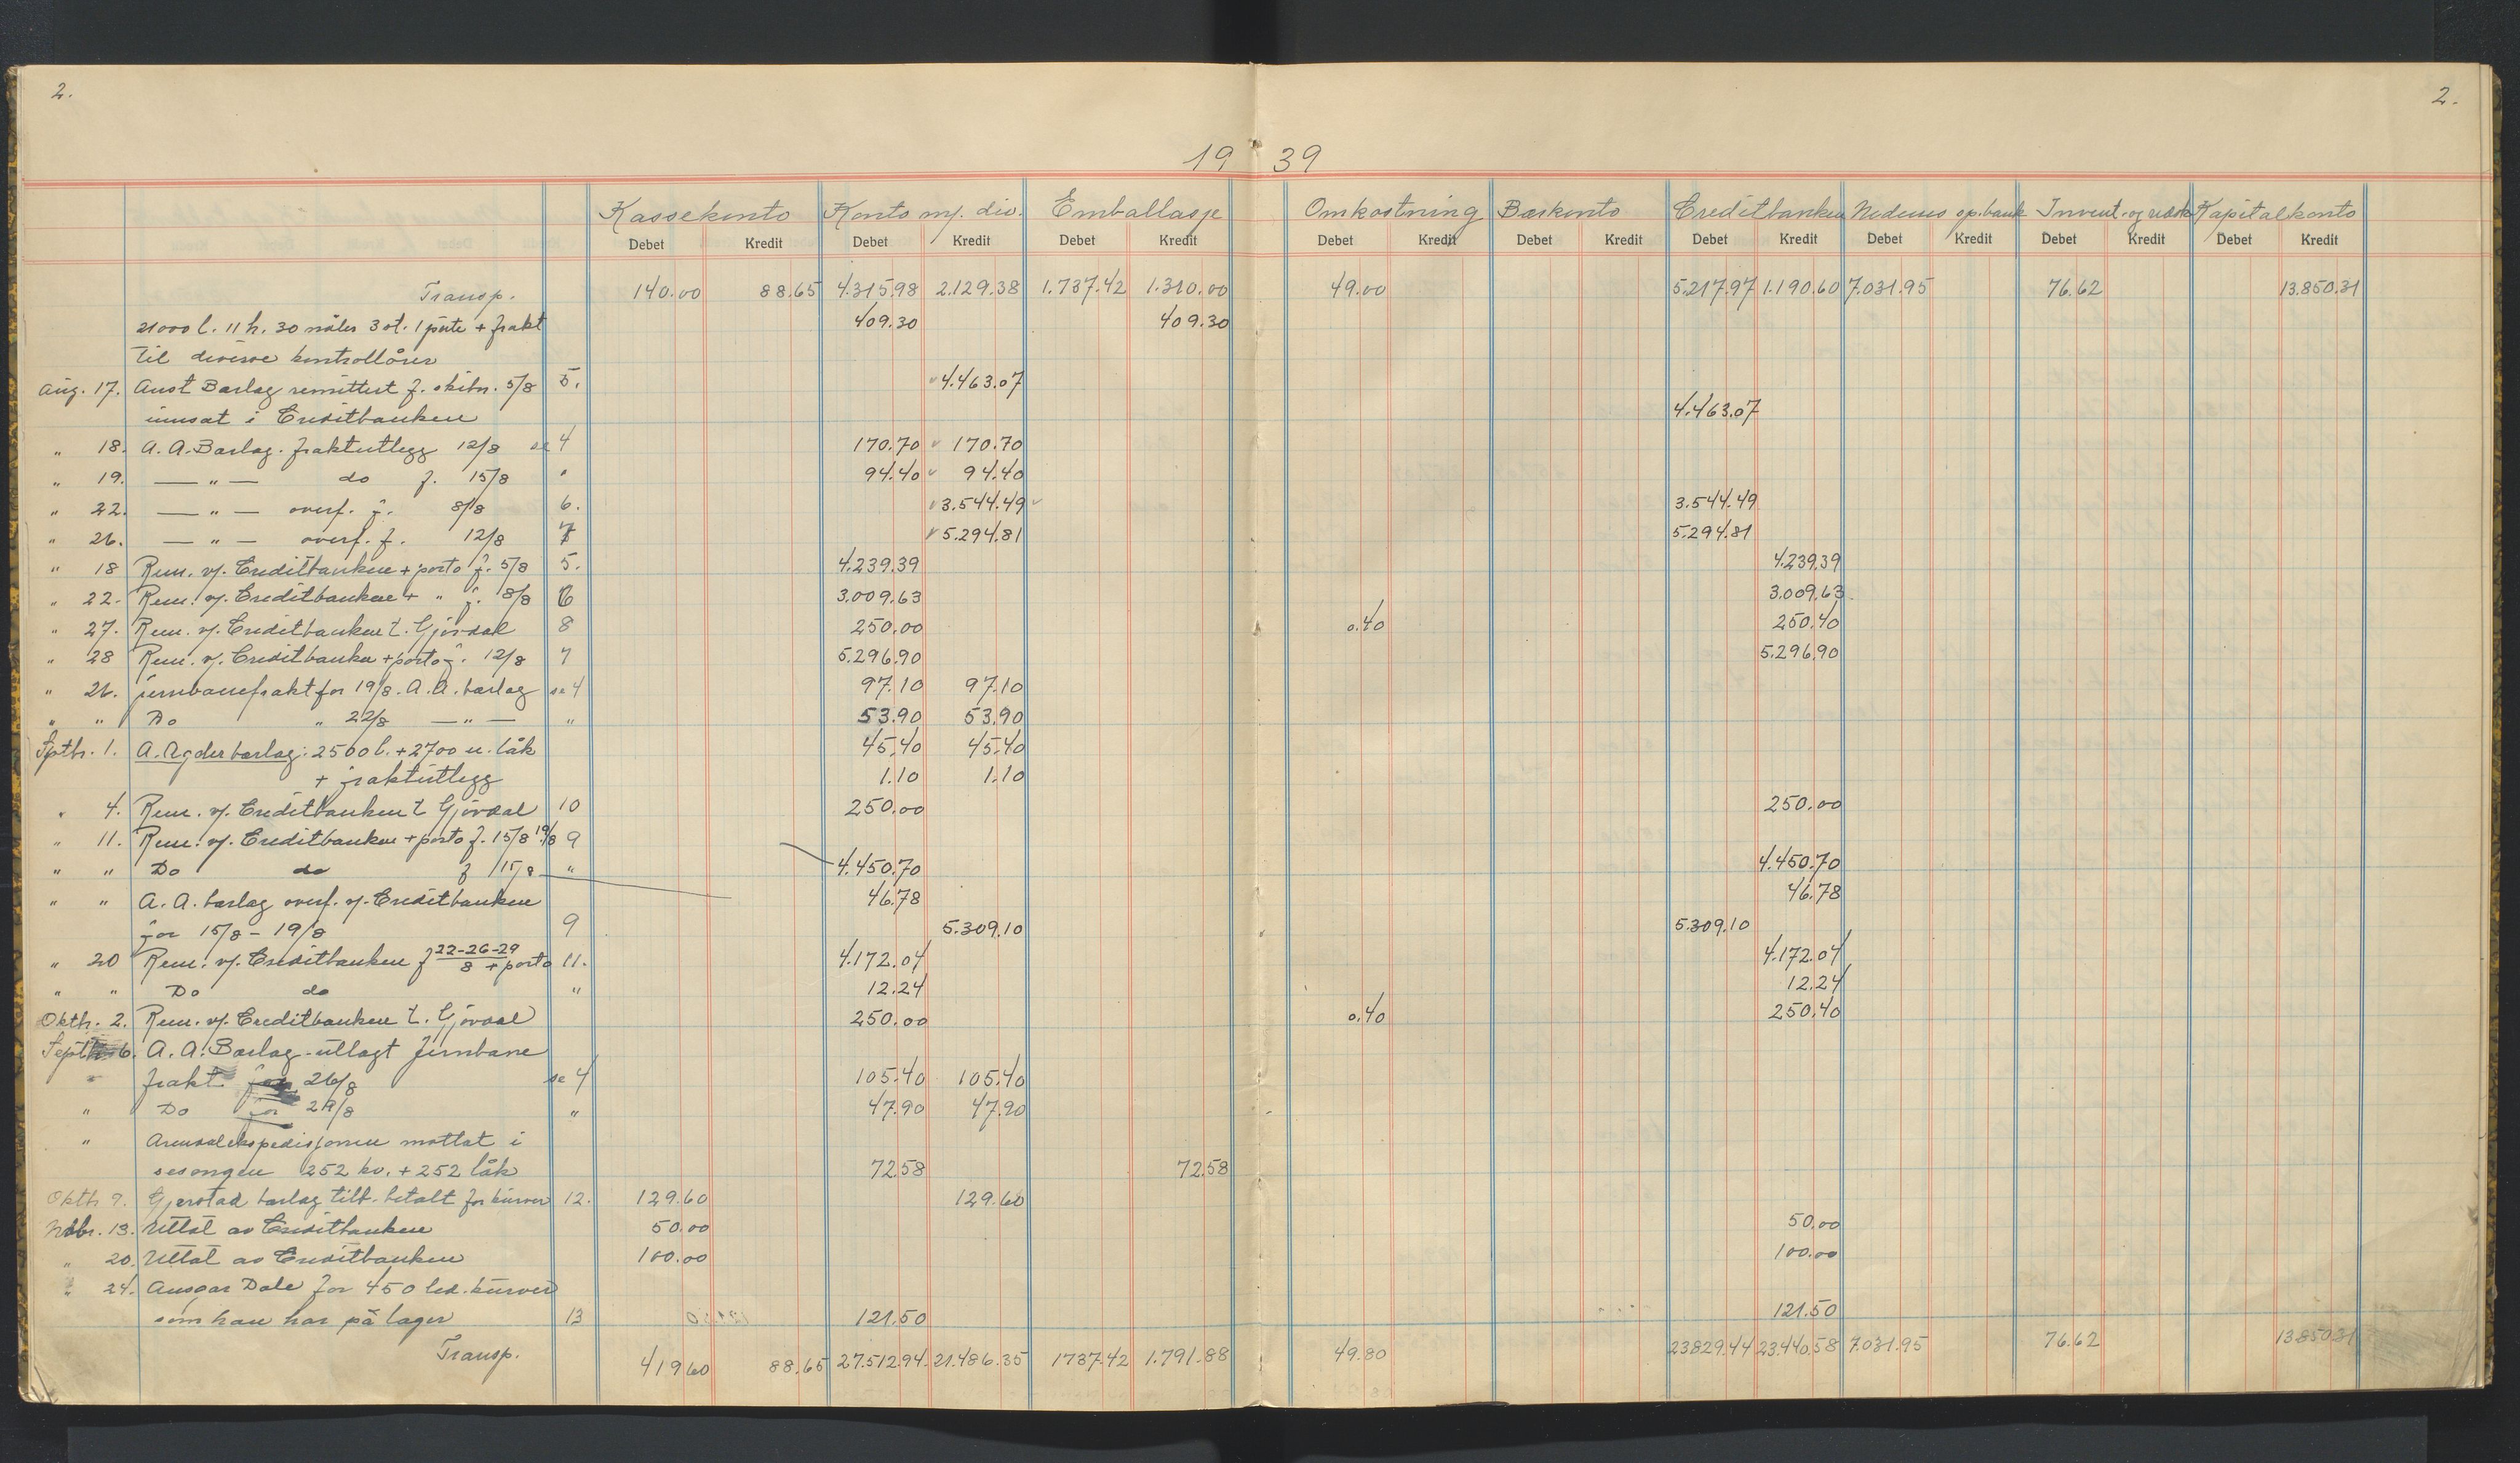 2. 2.
19 39
Kassekonto Konto m/. div. Emballasje Omkostning Bærkonto Creditbanken Nedenes sp.bank Invent. og Kapitalkonto
Debet Kredit Debet Kredit Debet Kredit Debet Kredit Debet Kredit Debet Kredit Debet Kredit Debet Kredit Debet Kredit
Transp. 140.00 88.65 4.315.98 2.129.38 1.737.42 1.310.00 49.00 5.217.97 1.190.60 7.031.95 76.62 13.850.31
21000 l. 11 h. 30 nåler 3 st. 1 + frakt 409.30 409.30
til diverse kontrollører
Aug. 17. Aust Bærlag remittert f. skibn. 5/8 5. 4.463.07
innsat i Creditbanken 4.463.07
" 18. A. A. Bærlag. fraktutlegg 12/8 se 4 170.70 170.70
" 19. — " — do f. 15/8 " 94.40 94.40
" 22. — " — overf. f. 8/8 6. 3.544.49 3.544.49
" 26. — " — overf. f. 12/8 7 5.294.81 5.294.81
" 18 Rem. v/. Creditbanken + porto f. 5/8 5. 4.239.39 4.239.39
" 22. Rem. v/. Creditbanken + " f. 8/8 6 3.009.63 3.009.63
" 27. Rem. v/. Creditbanken t. Gjøvdal 8 250.00 0.40 250.40
" 28 Rem. v/. Creditbanken + porto f. 12/8 7 5.296.90 5.296.90
" 26. jernbanefrakt for 19/8. A. A. bærlag se 4 97.10 97.10
" " Do " 22/8 — " — " 53.90 53.90
Sptbr. 1. A. Agder bærlag: 2500 l. + 2700 u. låk 45.40 45.40
+ fraktutlegg 1.10 1.10
" 4. Rem. v/. Creditbanken t Gjøvdal 10 250.00 250.00
" 11. Rem. v/. Creditbanken + porto f. 15/8 19/8 9
" " Do do f 15/8 " 4.450.70 4.450.70
" " A. A. bærlag overf. v/. Creditbanken 46.78 46.78
for 15/8 - 19/8 9 5.309.10 5.309.10
" 20 Rem. v/. Creditbanken f 22-26-29/8 + porto 11. 4.172.04 4.172.04
" " Do do " 12.24 12.24
Oktbr. 2. Rem. v/. Creditbanken t. Gjøvdal 250.00 0.40 250.40
Septbr 6. A. A. Bærlag - utlagt Jernbane
" frakt for 26/8 se 4 105.40 105.40
" Do for 29/8 " 47.90 47.90
" Arendalekspedisjonen mottat i
sesongen 252 kv. + 252 låk 72.58 72.58
Oktb 9. Gjerstad bærlag tilb. betalt for kurver 12. 129.60 129.60
Novbr. 13. Uttat av Creditbanken 50.00 50.00
" 20. Uttat av Creditbanken 100.00 100.00
" 24. Ansgar Dale for 450 kurver
som han har på lager 13 121.50 121.50
Transp. 419.60 88.65 27.512.94. 21.486.35 1737.42 1.791.88 49.80 23829.44 23.440.58 7.031.95 76.62 13.850.31